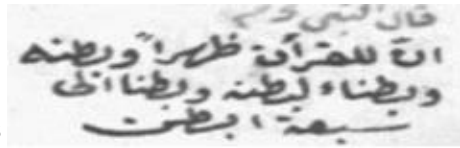 قال النبي
انّ للقرآن ظهراً وبطنه
وبطناء لبطنه وبطنا الى
سبعة ابطن